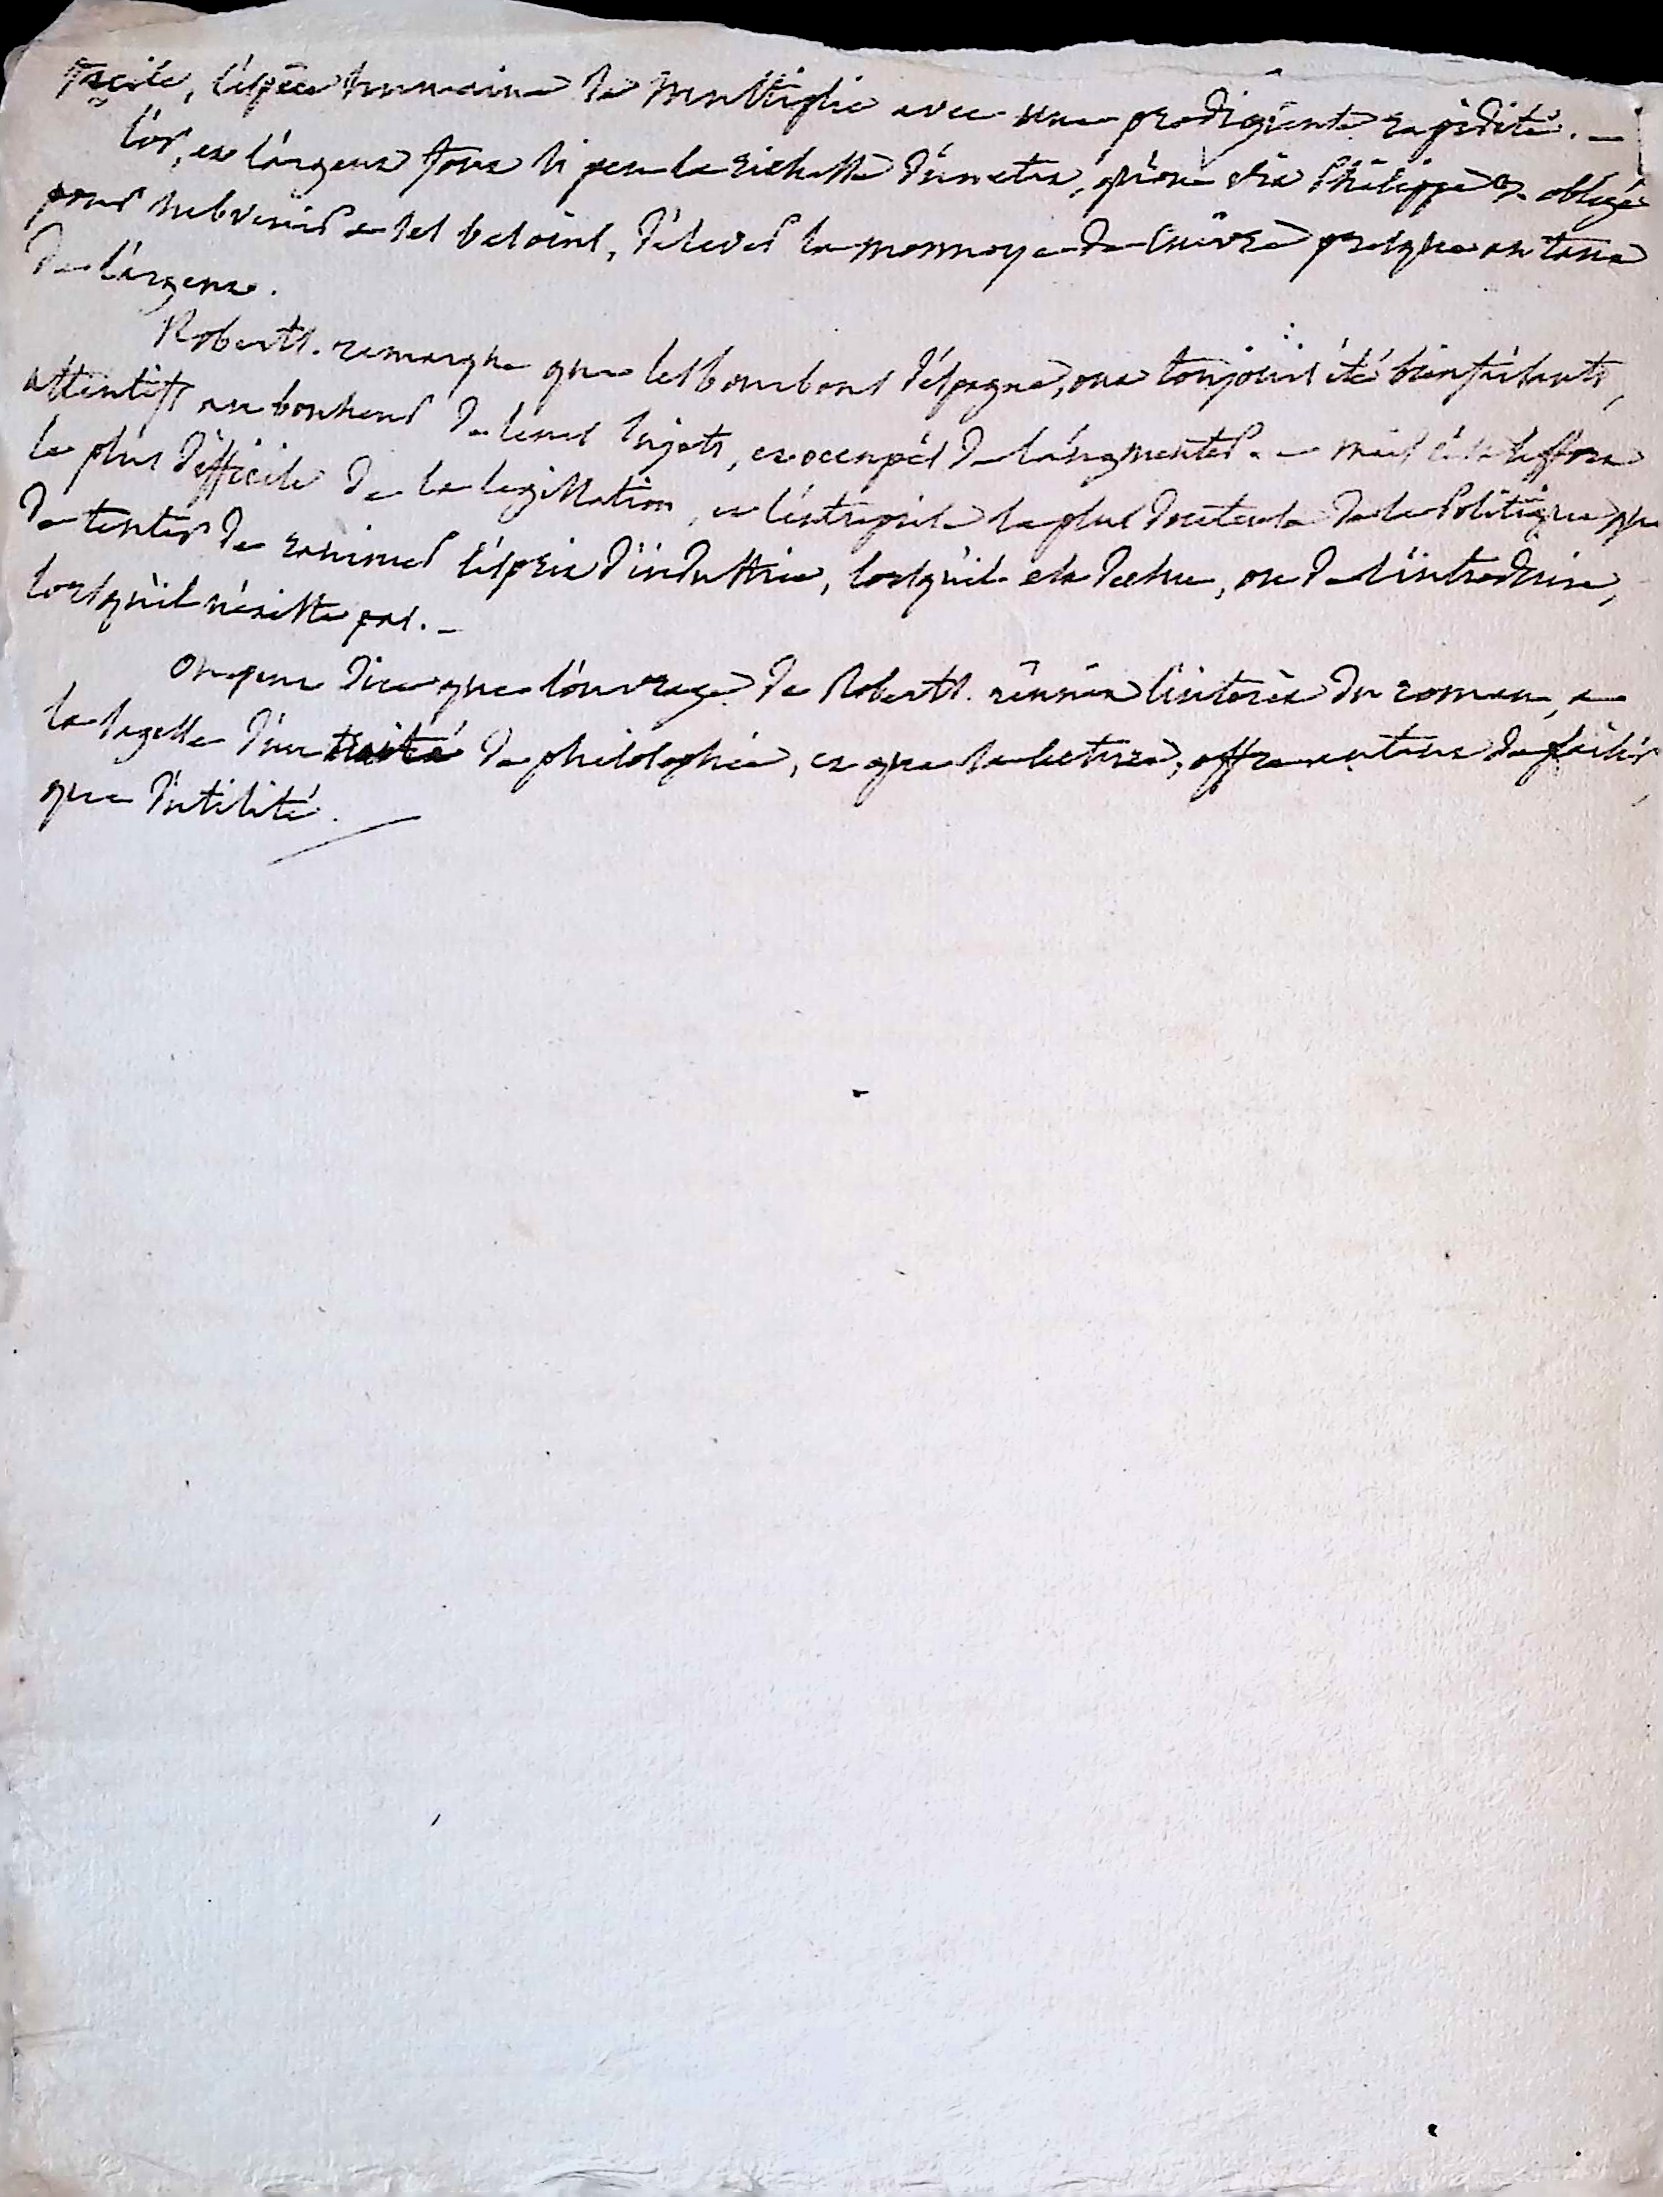 facile, l'éspèce humaine se multiplie avec une prodigieuse rapidité. —
l'or, et l'argent font si peu la richesse d'un etat, qu'on vit Philippe 3. obligé
pour subvenir a ses besoins, d'élever la monnoye de cuivre presque au taux
de l'argent.
Roberts. remarque que les bourbons d'éspagne, ont toujours été bienfaisants,
attentifs au bonheur de leurs sujets, et occupés de l'augmenter. — mais c'est l'effort
le plus difficile de la legislation, et l'entreprise la plus de la Politique que
de tenter de ranimer l'ésprit d'industrie, lorsqu'il est dechu, ou de l'introduire,
lorsqu'il n'existe pas. —
on peut dire que l'ouvrage de Roberts. réunit l'interèt du roman, a
la sagesse d'un traité de philosophie, et que sa lecture, offre autant de plaisir
que d'utilité.